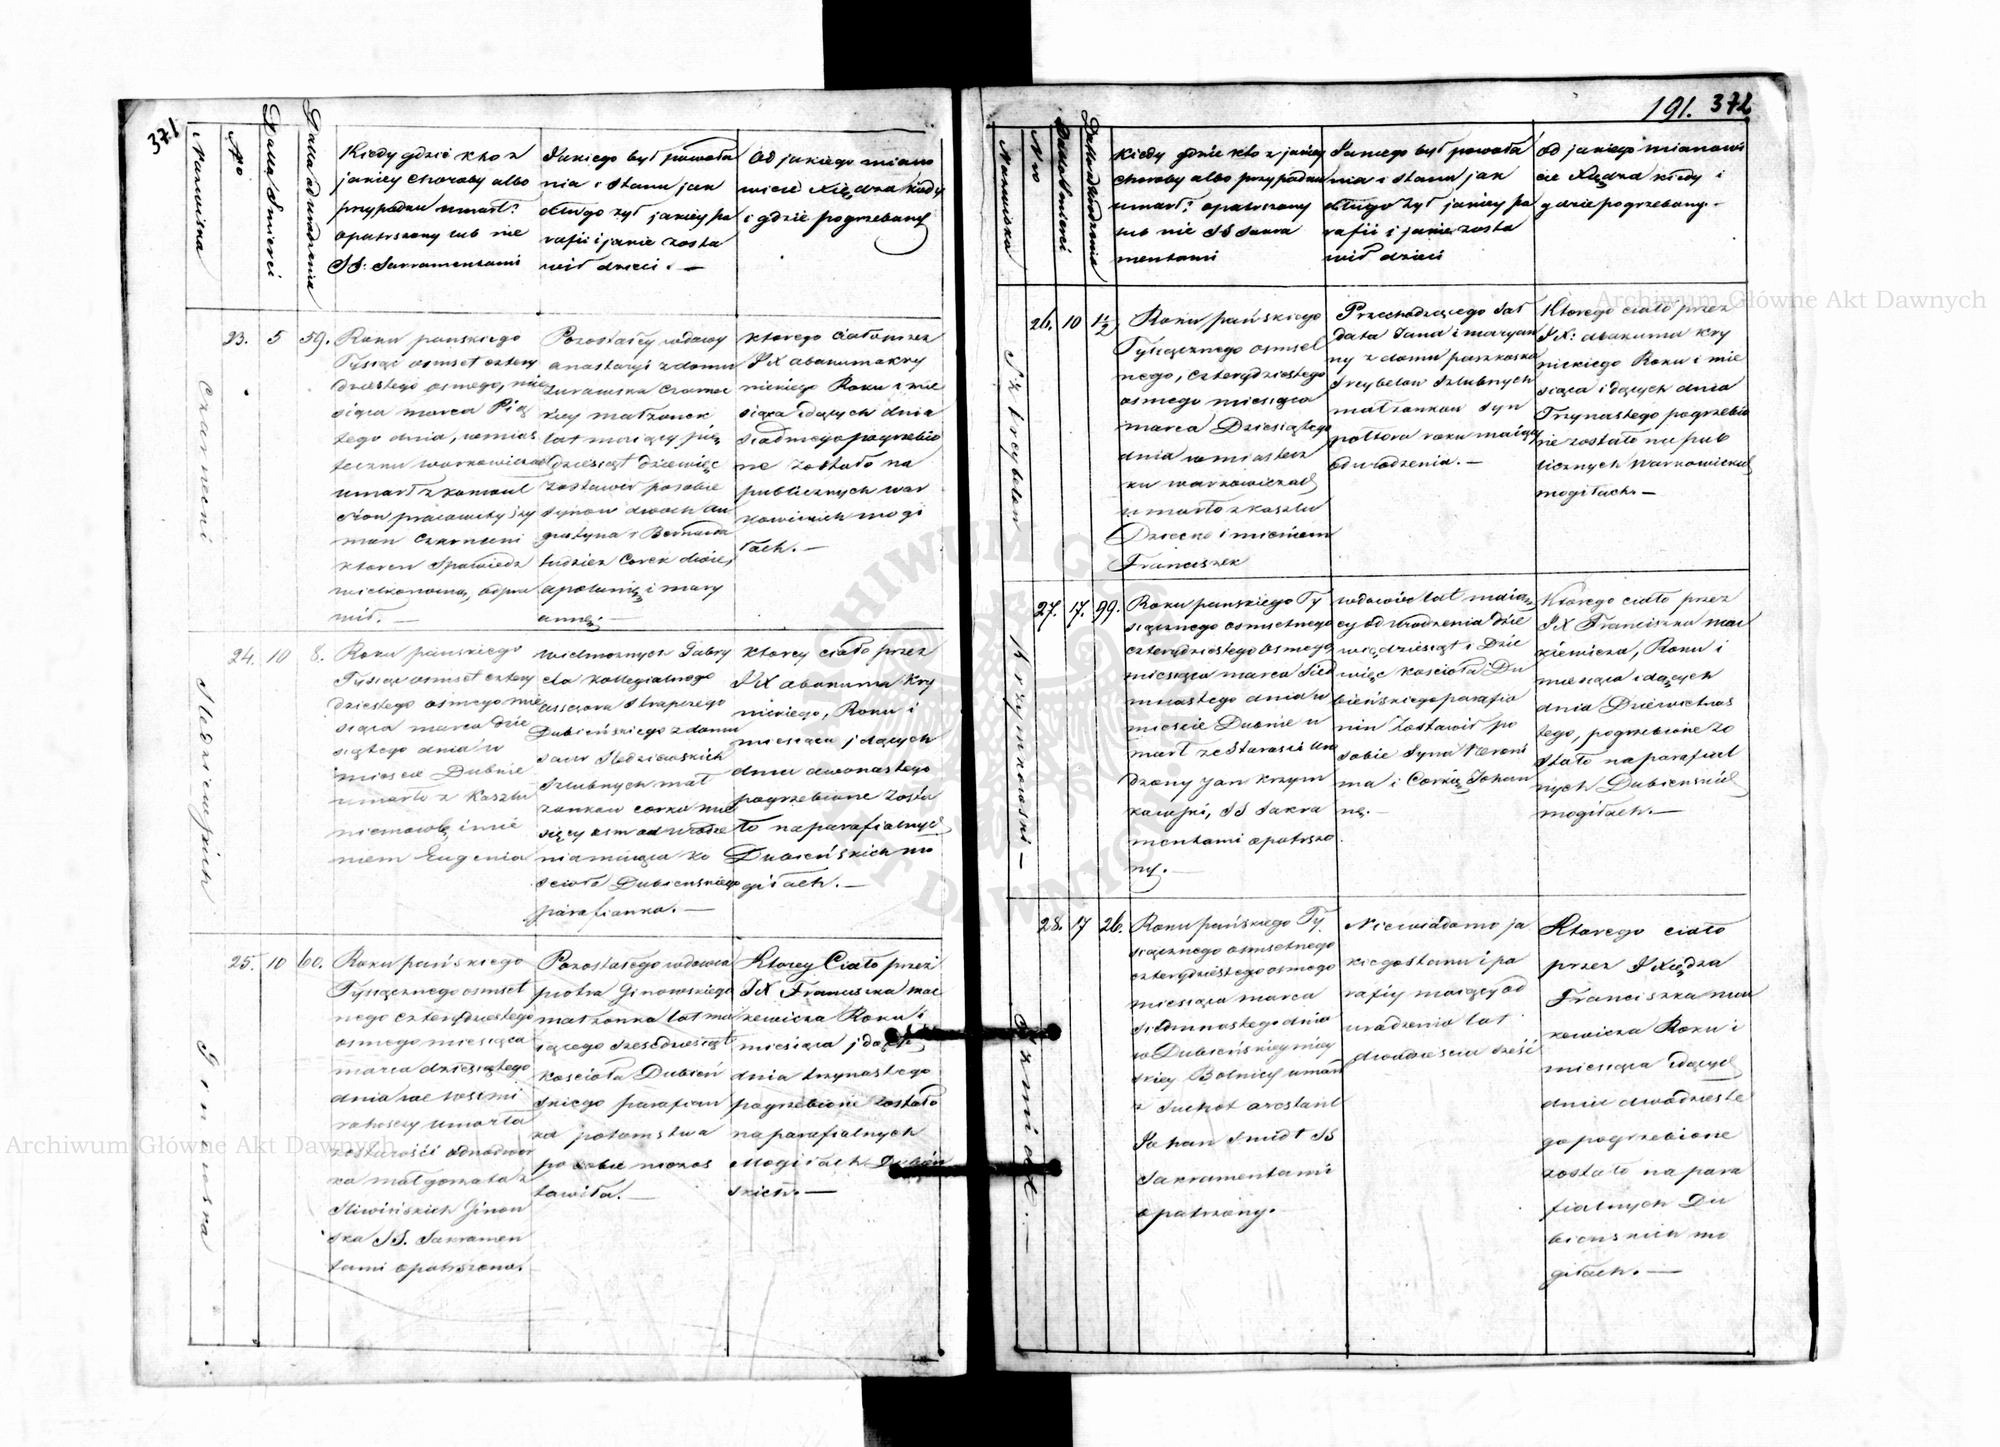 371
Nazwiska
No
Datta Śmierci
Datta od urodzenia
Kiedy gdzie kto z
jakiey choroby albo
przypadku umarł?
opatrzony lub nie
SS: Sakramentami
Jakiego był powoła
nia i stanu jak
długo żył jakiey pa
rafii i jakie zosta
wił dzieci. —
Od jakiego miano
wicie Xiędza kiedy
i gdzie pogrzebany
23.
5
59.
Czarnecki
Roku pańskiego
Tysiąc osmset cztery
dziestego osmego, mie
siąca marca Pią
tego dnia, w mias
teczku Warkowiczach
umarł z konwul
siow pracowity Szy
mon Czarnecki
ktoren Spowiedz
wielkanocną, odpra
wił. —
Pozostałey wdowy
anastazyi z domu
Żurawska Czarnec
kiey małżonek
lat maiący pięć
dziesiąt dziewięć
zostawił po sobie
synow dwoch Au
gustyna i Bernarda
tudzież Corek dwie
apolonię i mary
annę. —
ktorego ciało przez
JX abakuma Kry
nickiego Roku i mie
siąca idących dnia
siodmego pogrzebio
ne zostało na
publicznych war
kowickich mogi
łach. —
24.
10
8.
Roku pańskiego
Tysiąc osmset cztery
dziestego osmego mie
siąca marca dzie
siątego dnia w
miescie Dubnie
umarło z kaszlu
niemowlę imie
niem Eugenia
wielmożnych Gabry
ela Kollegialnego
assessora Strapczego
Dubieńskiego z domu
szlubnych mał
żonkow corka mie
sięcy osm od urodze
nia maiąca ko
scioła Dubienskiego
parafianka. —
ktorey ciało przez
JX abakuma Kry
nickiego, Roku i
miesiąca idących
dnia dwonastego
pogrzebione zosta
ło na parafialnych
Dubieńskich mo
giłach. —
25.
10
60.
Ginowska
Roku pańskiego
Tysiącznego osmset
nego czterydziestego
osmego miesiąca
marca dziesiątego
dnia we wsi mi
umarła
z starości odnodwor
ka małgorzata z
Sliwińskich Ginow
ska SS. Sakramen
tami opatrzona.
Pozostałego wdowca
piotra Ginowskiego
małżonka lat ma
iącego sześćdziesiąt
kościoła Dubień
skiego parafian
ka potomstwa
po sobie niezos
tawiła. —
Ktorey Ciało przez
JX Franciszka mac
kiewicza Roku i
miesiąca idących
dnia trzynastego
pogrzebione zostało
na parafialnych
Mogiłach Dubień
skich. —
191. 372
Nazwiska
Nro
Datta Śmierci
Datta od urodzenia
Kiedy gdzie kto z jakiey
choroby albo przypadku
umarł? opatrzony
lub nie SS Sakra
mentami
Jakiego był powoła
nia i stanu jak
długo żył jakiey pa
rafii i jakie zosta
wił dzieci
Od jakiego mianowi
cie Xiędza kiedy i
gdzie pogrzebany. -
26.
10
1½
Roku pańskiego
Tysiącznego osmset
nego, czterydziestego
osmego miesiąca
marca Dziesiątego
dnia w miastecz
ku warkowiczach
umarło z kaszlu
Dziecko imieniem
Franciszek
Przechodzącego Soł
data Jana i maryan
ny z domu
szlubnych
małżonkow syn
połtora roku maiący
od urodzenia. —
Ktorego ciało przez
JX: abakuma Kry
nickiego Roku i mie
siąca idących dnia
Trzynastego pogrzebio
ne zostało na pub
licznych warkowickich
mogiłach —
27.
17.
99.
Krzymkowski —
Roku pańskiego Ty
siącznego osmsetnego
czterydziestego osmego
miesiąca marca Sied
mnastego dnia w
miescie Dubnie u
marł ze starości uro
dzony Jan Krzym
kowski, SS Sakra
mentami opatrzo
ny. —
wdowiec lat maią
cy od urodzenia dzie
więdziesiąt i Dzie
więć kościoła Du
bieńskiego parafia
nin zostawił po
sobie syna Heroni
ma i Corkę Johan
nę. —
Ktorego ciało przez
JX Franciszka mac
kiewicza, Roku i
miesiąca idących
dnia Dziewietnas
tego, pogrzebione zo
stało na parafial
nych Dubienskich
mogiłach. —
28.
17
26.
Szmidt. —
Roku pańskiego Ty
siącznego osmsetnego
czterydziestego osmego
miesiąca marca
siedmnastego dnia
w Dubieńskiey miey
skiey Bolnicy umarł
z suchot arestant
Johan Smidt SS
Sakramentami
opatrzony.
Niewiadomo ja
kiego stanu i pa
rafiy maiący od
urodzenia lat
dwadziescia sześć
Ktorego ciało
przez JXiędza
Franciszka mac
kewicza Roku i
miesiąca idących
dnia dwudzieste
go pogrzebione
zostało na para
fialnych Du
bienskich mo
giłach. —
Archiwum Główne Akt Dawnych
Archiwum Główne Akt Dawnych